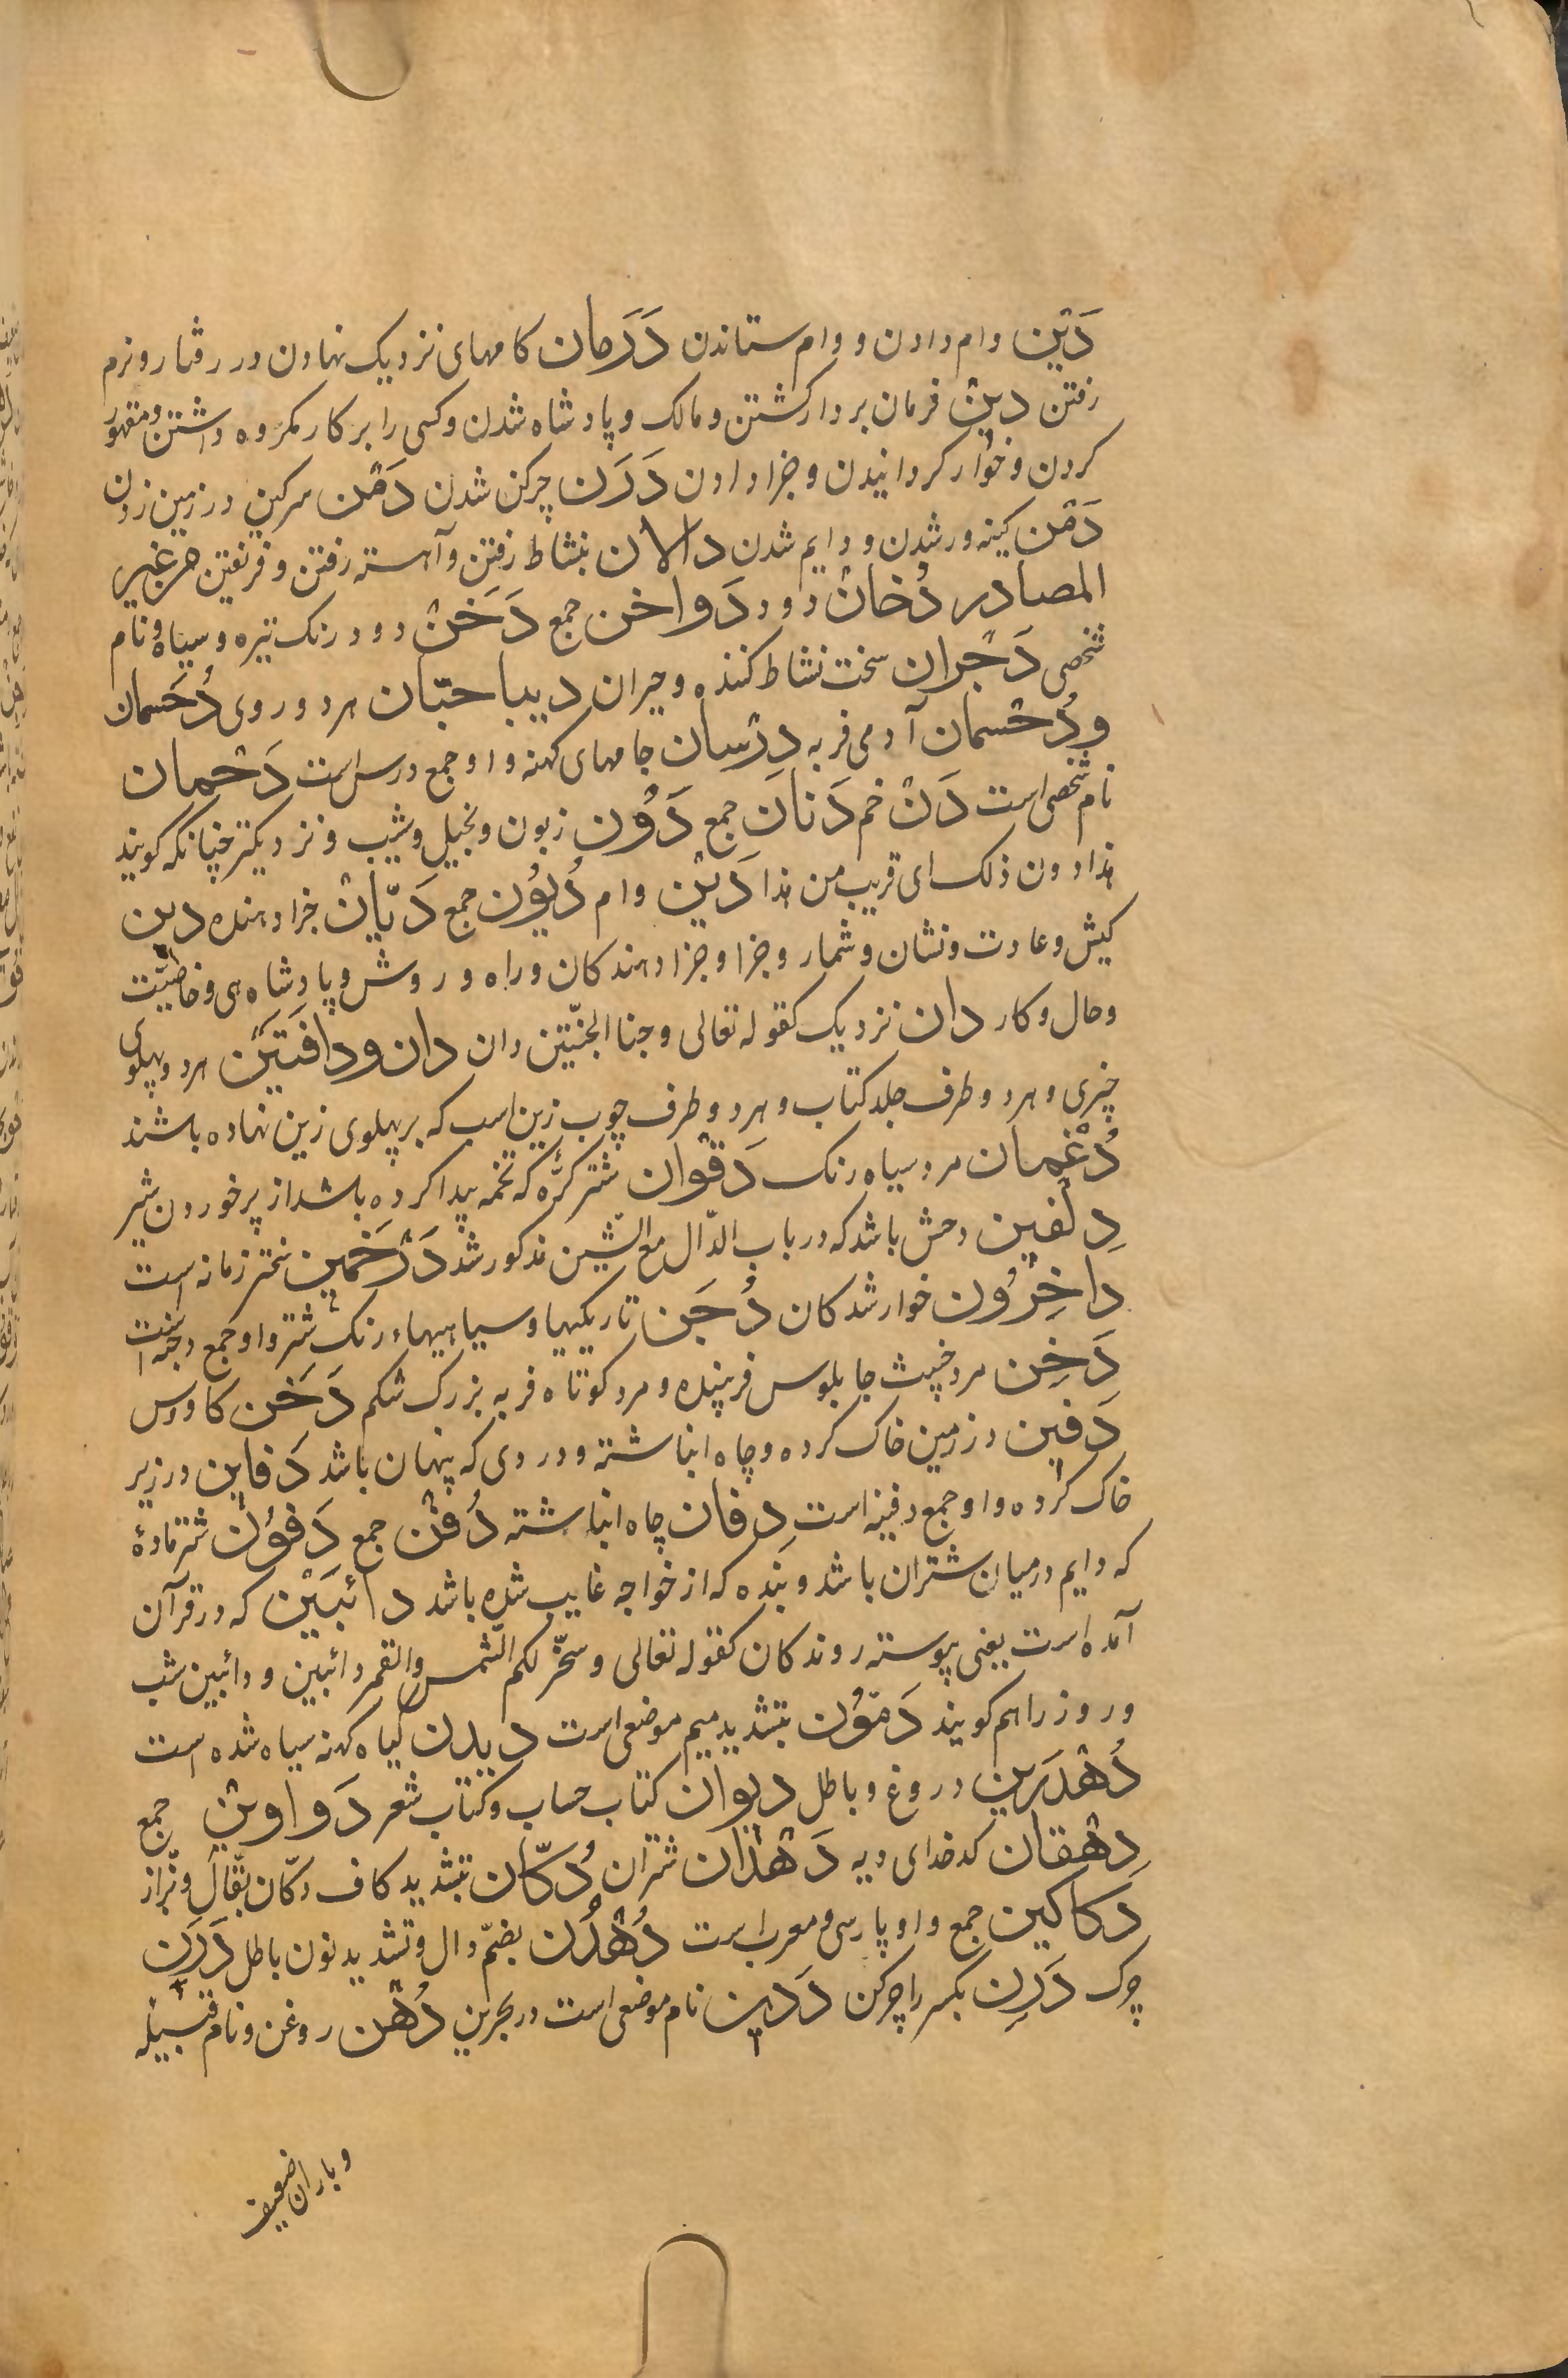 دَیْن وام دادن و وام ستاندن دَرَمان کامهای نزدیک نهادن در رفتار و نرم
رفتن دین فرمان بردار کشتن و مالک و پادشاه شدن و کسی را بر کار مکروه داشتن و مقهور
کردن و خوار کردانیدن و جزا دادن دَرَن چرکن شدن دَمْن سرکین در زمین زدن
دَمْن کینه ور شدن و دایم شدن دالان بنشاط رفتن و آهسته رفتن و فریفتن من غیر
المصادر دُخانْ دود دَواخن جمع دَخَنْ دود رنک تیره و سیاه و نام
شخصی دَجْران سخت نشاط کننده و حیران دیباجتان هر دو روی دُحسمان
ودُحْسمان آدمی فربه دِرْسان جامهای کهنه و او جمع درس است دَحْمان
نام شخصی است دَنْ خم دَنان جمع دَوْن زبون و بخیل و شیب و نزدیکتر چنانکه کویند
هذا دون ذلک ای قریب من هذا دَیْن وام دُیُوْن جمع دَیّانْ جزا دهنده دین
کیش و عادت و نشان و شمار و جزا و جزا دهندکان و راه و روش و پادشاهی و خاصیّت
و حال و کار دان نزدیک کقوله تعالی و جنا الجنّتین دان دان ودافَتَیْن هر دو پهلوی
چیزی و هر دو طرف جلد کتاب و هر دو طرف چوب زین اسب که بر پهلوی زین نهاده باشند
دُغْمان مرد سیاه رنک دَقْوان شتر کرّه که تخمه پیدا کرده باشد از پر خوردن شیر
دِلفین دخش باشد که در باب الدّال مع الشّین مذکور شد دَرْخَمین سختر زمانه است
داخِرُوْن خوار شدکان دُجَن تاریکیها و سیاهیهاء رنک شتر و او جمع دجنه است
دَخِن مرد خبیث جابلوس فریبنده و مرد کوتاه فربه بزرک شکم دَخَن کاورس
دَفین در زمین خاک کرده و چاه انباشته و دردی که پنهان باشد دَفاین در زیر
خاک کرده و او جمع دفینه است دِفان چاه انباشته دُفْن جمع دَفُوْن شتر مادۀ
که دایم در میان شتران باشد و بنده که از خواجه غایب شده باشد دائبَیْن که در قرآن
آمده است یعنی پیوسته روندکان کقوله تعالی و سخّر لکم الشّمس والقمر دائبین و دائبین شب
و روز را هم کویند دَمّوْن بتشدید میم موضعی است دیدن کیاه کهنه سیاه شده است
دُهْدَرَین دروغ و باطل دیوان کتاب حساب و کتاب شعر دَواوین جمع
دِهْقان کدخدای دیه دَهْدان شتران دُکّان بتشدید کاف دکّان بقّال و بزّاز
دَکاکین جمع و او پارسی و معرب است دُهْدُن بضمّ دال و تشدید نون باطل دَرَن
چرک دَرِن بکسر را چرکن دَدین نام موضعی است در بحرین دُهْن روغن و نام قبیله
و باران ضعیف